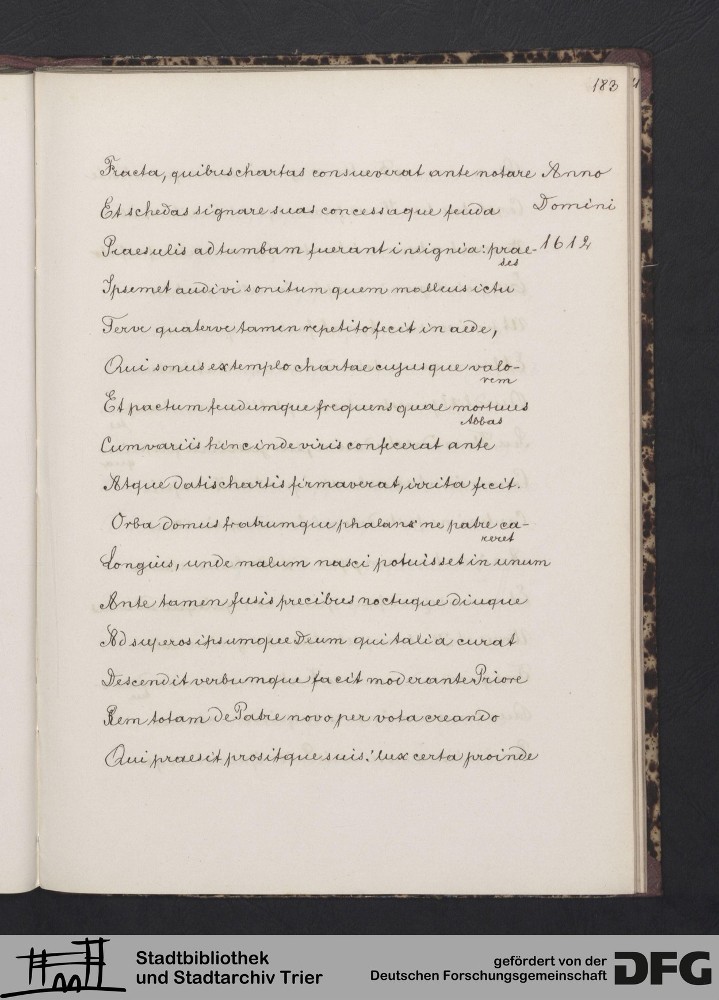 183
Fracta, quibus chartas consueverat ante notare Anno
Et schedas signare suas concessaque feuda Domini
Praesulis ad tumbam fuerant insignia: prae- 1612
ses
Ipsemet audivi sonitum quem malleus ictu
Terve quaterve tamen repetito fecit in aede,
Qui sonus extemplo chartae cujusque valo-
rem
Et pactum feudumque frequens quae mortuus
Abbas
Cum variis hinc inde viris confecerat ante
Atque datis chartis firmaverat, irrita fecit.
Orba domus fratrumque phalanx ne patre ca-
reret
Longius, unde malum nasci potuisset in unum
Ante tamen fusis precibus noctuque diuque
Ad superos ipsumque Deum qui talia curat
Descendit verbumque facit moderante Priore
Rem totam de Patre novo per vota creando
Qui praesit prositque suis: lux certa proinde
Stadtbibliothek
und Stadtarchiv Trier
gefördert von der
Deutschen Forschungsgemeinschaft
DFG